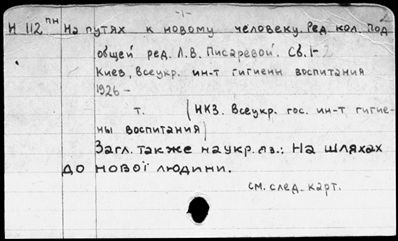 -1-
2
Н 112 пн На путях к новому человеку. Ред. кол. Под
общей ред. Л.В. Писаревой. Св. 1-2
Киев, Всеукр. ин-т гигиены воспитания
1926 –
т. (НКЗ. Всеукр. гос. ин-т гигие-
ны воспитания)
Загл. также на укр. яз.: На шляхах
до нової людини.
см. след. карт.